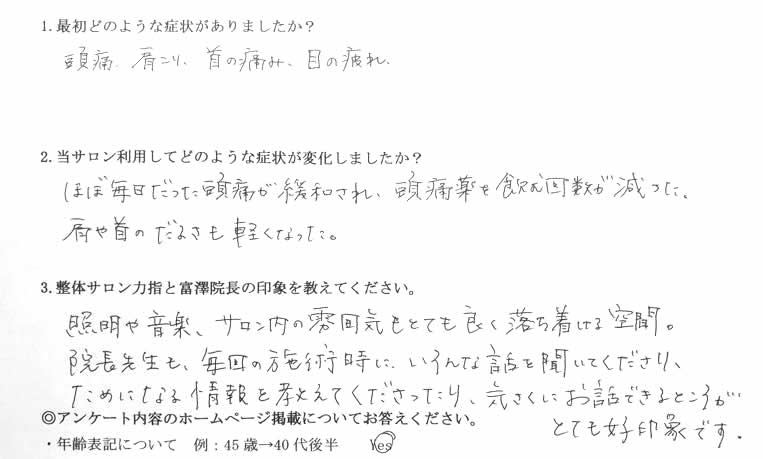 1. 最初どのような症状がありましたか？
頭痛、肩こり、首の痛み、目の疲れ、
2. 当サロン利用してどのような症状が変化しましたか？
ほぼ毎日だった頭痛が緩和され、頭痛薬を飲む回数が減った。
肩や首のだるさも軽くなった。
3. 整体サロン力指と富澤院長の印象を教えてください。
照明や音楽、サロン内の雰囲気もとても良く落ち着ける空間。
院長先生も、毎回の施術時に、いろんな話を聞いてくださり、
ためになる情報を教えてくださったり、気さくにお話できるところが
◎アンケート内容のホームページ掲載についてお答えください。
とても好印象です。
・年齢表記について 例：45歳→40代後半 Yes